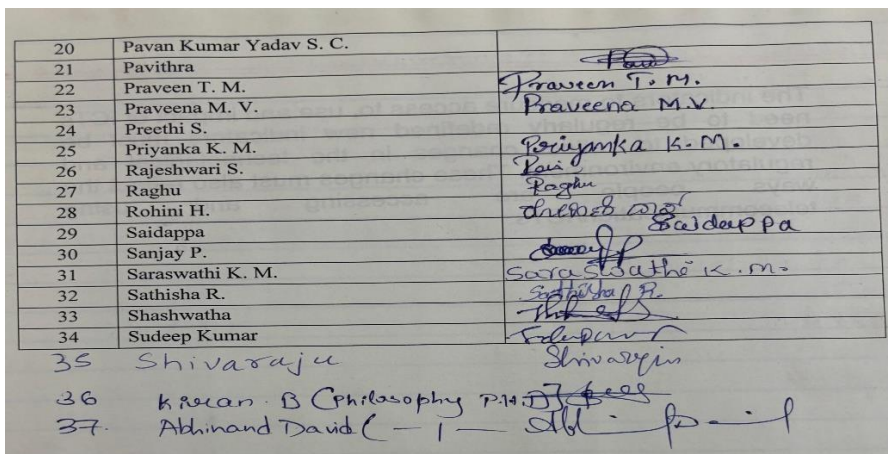 20 Pavan Kumar Yadav S. C.
21 Pavithra
22 Praveen T. M. Praveen T. M.
23 Praveena M. V. Praveena M.V.
24 Preethi S.
25 Priyanka K. M. Priyanka K. M.
26 Rajeshwari S.
27 Raghu Raghu
28 Rohini H.
29 Saidappa Saidappa
30 Sanjay P.
31 Saraswathi K. M. Saraswathi K. M.
32 Sathisha R. Sathisha R.
33 Shashwatha
34 Sudeep Kumar
35 Shivaraju Shivaraju
36 Kiran B (Philosophy P.H.D)
37. Abhinand David ( — 1 —